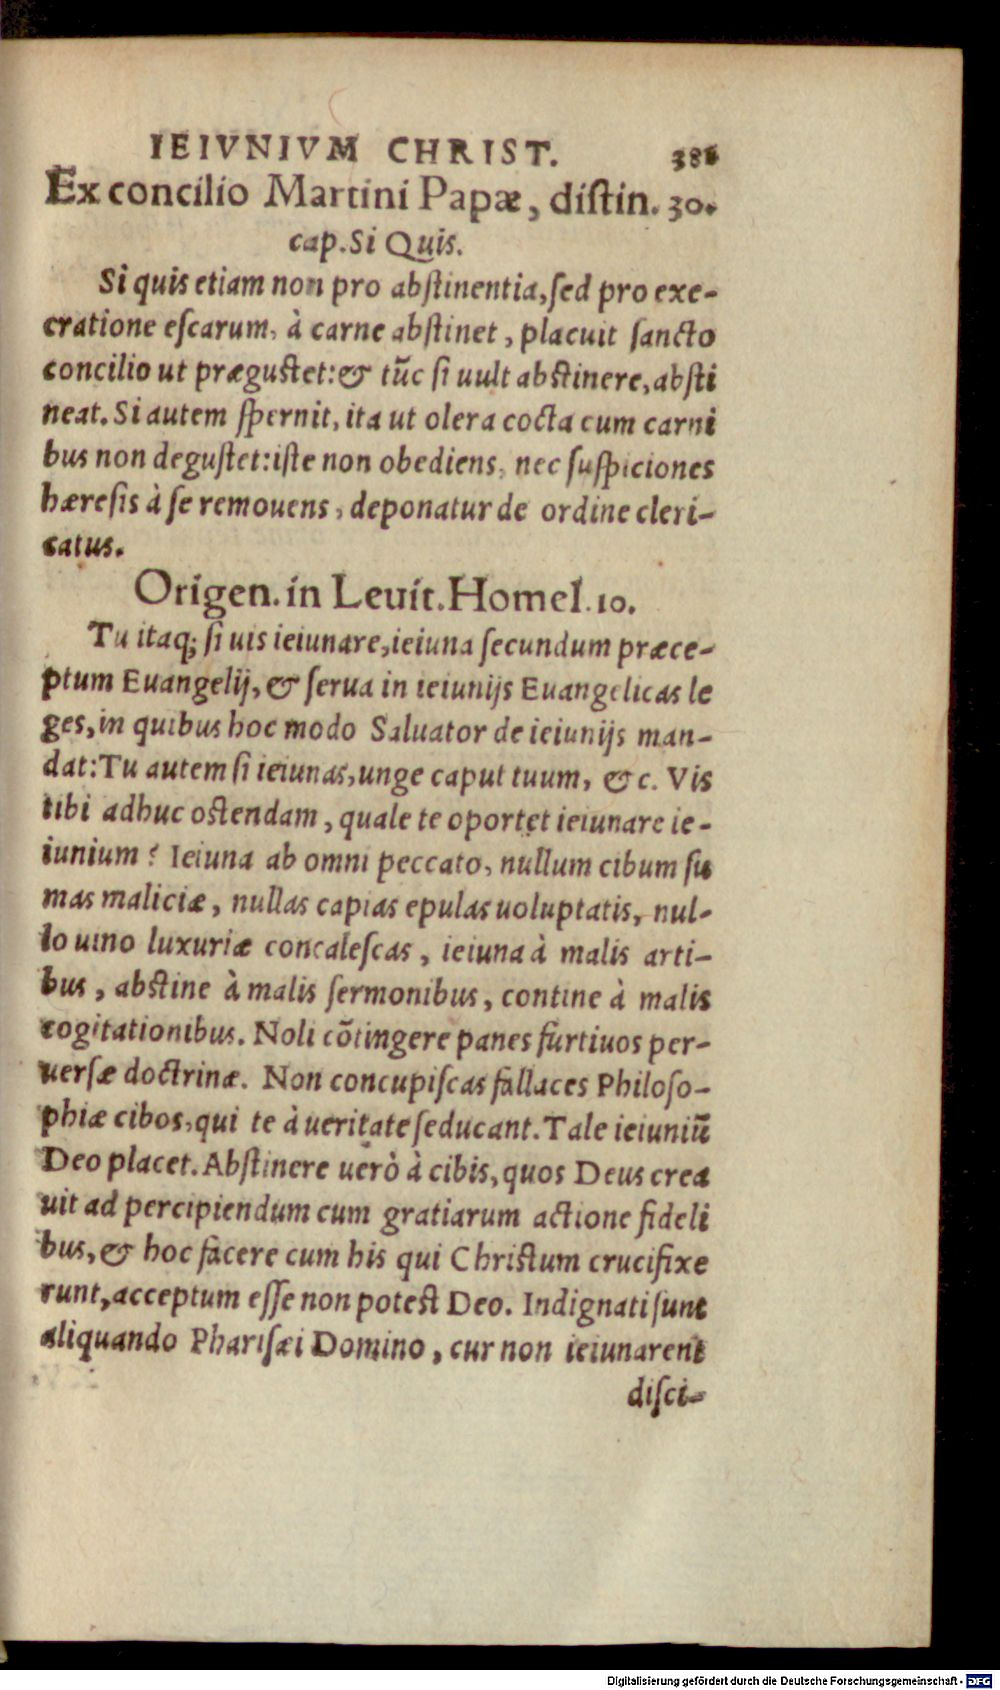 IEIVNIVM CHRIST.
Ex concilio Martini Papæ, distin. 30.
cap. Si Quis.
Si quis etiam non pro abstinentia, sed pro exe-
cratione escarum, à carne abstinet, placuit sancto
concilio ut prægustet: & tūc si uult abstinere, absti
neat. Si autem spernit, ita ut olera cocta cum carni
bus non degustet: iste non obediens, nec suspiciones
hæresis à se remouens, deponatur de ordine cleri-
catus.
Origen. in Leuit. Homel. 10.
Tu itaq; si uis ieiunare, ieiuna secundum præce-
ptum Euangelij, & serua in ieiunijs Euangelicas le
ges, in quibus hoc modo Saluator de ieiunijs man-
dat: Tu autem si ieiunas, unge caput tuum, &c. Vis
tibi adhuc ostendam, quale te oportet ieiunare ie-
iunium? Ieiuna ab omni peccato, nullum cibum su
mas maliciæ, nullas capias epulas uoluptatis, nul-
lo uino luxuriæ concalescas, ieiuna à malis arti-
bus, abstine à malis sermonibus, contine à malis
cogitationibus. Noli cōtingere panes furtiuos per-
uersæ doctrinæ. Non concupiscas fallaces Philoso-
phiæ cibos, qui te à ueritate seducant. Tale ieiuniū
Deo placet. Abstinere uerò à cibis, quos Deus crea
uit ad percipiendum cum gratiarum actione fideli
bus, & hoc facere cum his qui Christum crucifixe
runt, acceptum esse non potest Deo. Indignati sunt
aliquando Pharisæi Domino, cur non ieiunarent
disci-
Digitalisierung gefördert durch die Deutsche Forschungsgemeinschaft - DFG